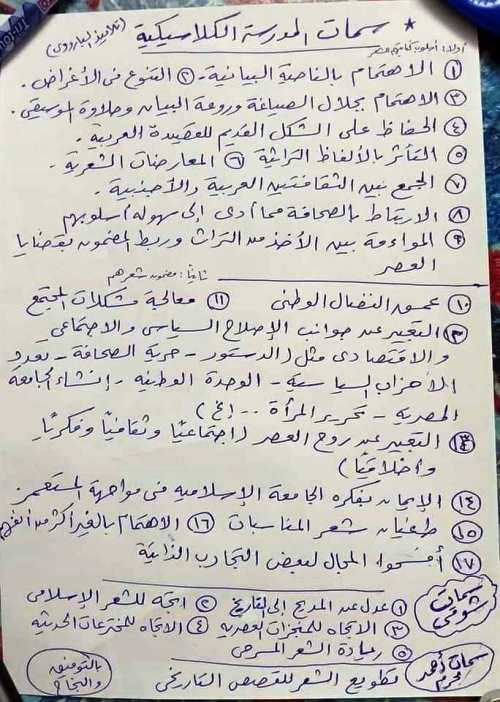 * سمات المدرسة الكلاسيكية (تلاميذ البارودى)
أولا: أسلوب كتابتهم للشعر
① الاهتمام بالناحية البيانية - ② التنوع فى الأغراض .
③ الاهتمام بجلال الصياغة وروعة البيان وحلاوة الموسيقى .
④ الحفاظ على الشكل القديم للقصيدة العربية .
⑤ التأثر بالألفاظ التراثية ⑥ المعارضات الشعرية .
⑦ الجمع بين الثقافتين العربية والأجنبية .
⑧ الارتباط بالصحافة مما أدى إلى سهولة أسلوبهم
⑨ المواءمة بين الأخذ من التراث وربط المضمون بقضايا
العصر
ثانيًا: مضمون شعرهم
⑩ عمق النضال الوطنى ⑪ معالجة مشكلات المجتمع
⑫ التعبير عن جوانب الإصلاح السياسى والاجتماعى
والاقتصادى مثل (الدستور - حرية الصحافة - تعدد
الأحزاب السياسية - الوحدة الوطنية - إنشاء الجامعة
المصرية - تحرير المرأة .. إلخ)
⑬ التعبير عن روح العصر (اجتماعيًا وثقافيًا وفكريًا
وأخلاقيًا)
⑭ الإيمان بفكرة الجامعة الإسلامية فى مواجهة المستعمر
⑮ طغيان شعر المناسبات ⑯ الاهتمام بالغير أكثر من أنفسهم
⑰ أفسحوا المجال لبعض التجارب الذاتية
سمات شوقى
① عدل عن المديح إلى التاريخ ② اتجه للشعر الإسلامى
③ الاتجاه للمنجزات العصرية ④ الاتجاه للمخترعات الحديثة
⑤ ريادة الشعر المسرحى
سمات أحمد محرم
تطويع الشعر للقصص التاريخى
بالتوفيق
والنجاح